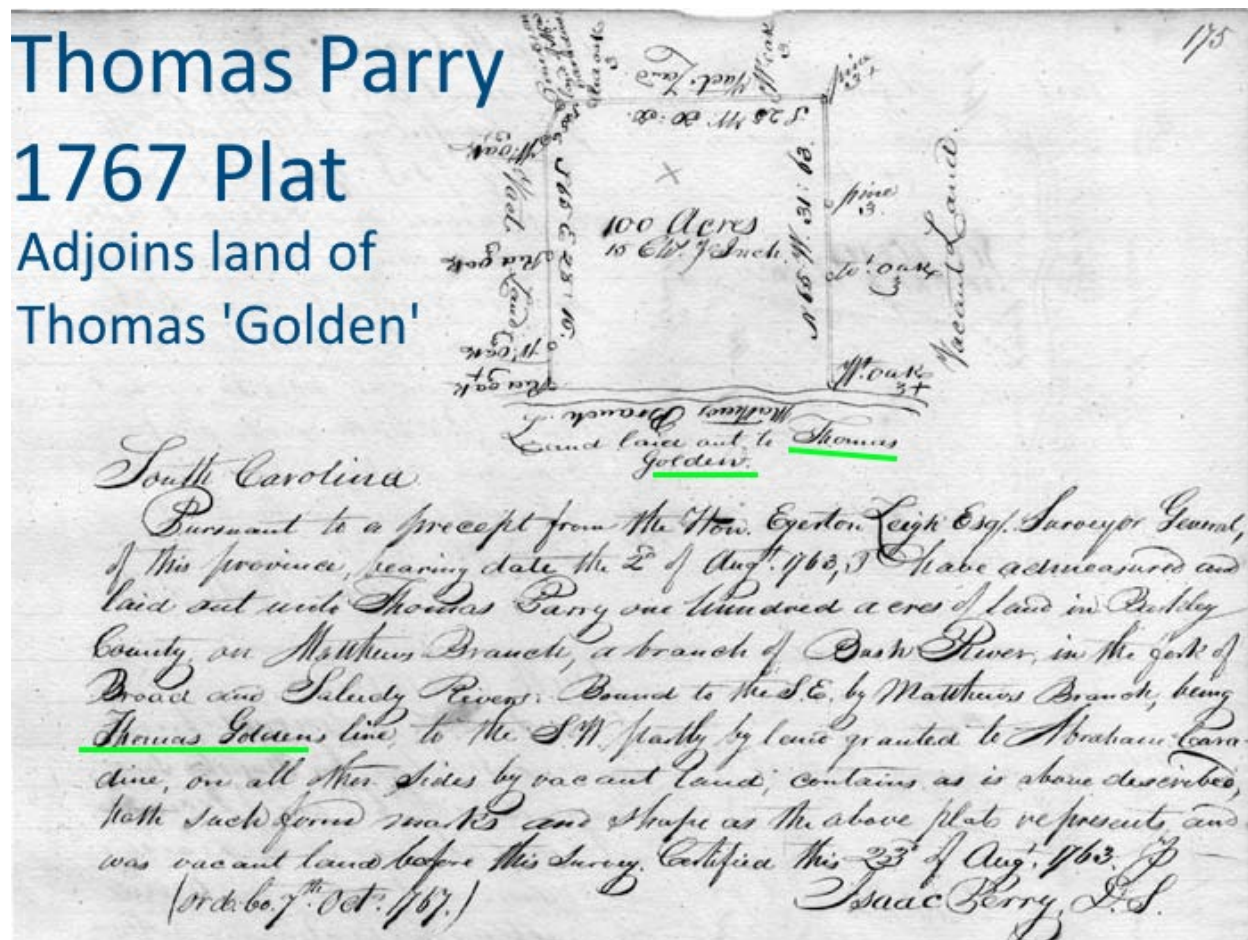 Thomas Parry
1767 Plat
Adjoins land of
Thomas 'Golden'
175
Vact. Land
W. oak
3
pine
3+
S 25 W. 30:50.
W. oak
3
Vact. Land
Red oak
W. oak
Red oak
3+
S 65 E 25:10.
100 Acres
10 Ch. Inch
N 65 W. 31:63.
pine
3.
W. oak
3
Wt. oak
3+
Vacant Land.
Matthews Branch
Land laid out to Thomas
Golden.
South Carolina
Pursuant to a precept from the Hon. Egerton Leigh Esqr. Surveyor General,
of this province, bearing date the 2d of Augt. 1763, I have admeasured and
laid out unto Thomas Parry one hundred acres of land in Berkley
County, on Matthews Branch, a branch of Bush River, in the fork of
Broad and Saludy Rivers: Bound to the S.E. by Matthews Branch, being
Thomas Goldens line, to the S.W. partly by land granted to Abraham Cara-
dine, on all other sides by vacant land; contains as is above described,
hath such form marks and shape as the above plat represents, and
was vacant land before this Survey. Certified this 23d of Augt. 1763. P
(ord. Co. 7th. Oct. 1767.)
Isaac Perry, D.S.